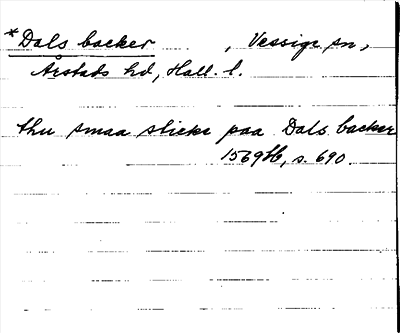 *Dals backer, Vessige sn,
Årstads hd, Hall. l.
thu smaa sticke paa Dals backer
1569 Jb, s. 690.